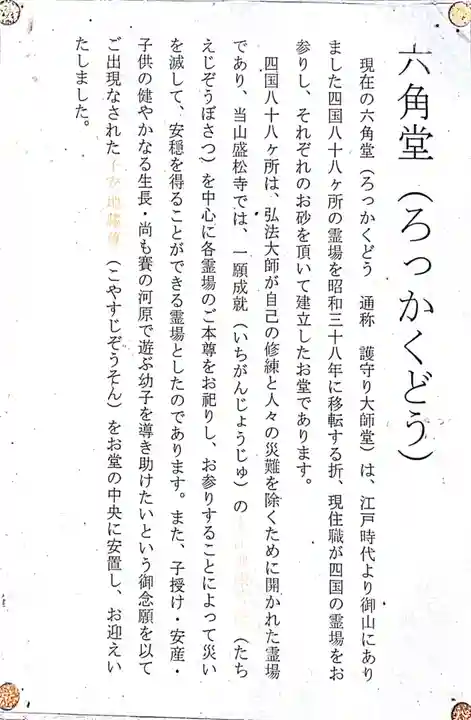 六角堂（ろっかくどう）
現在の六角堂（ろっかくどう　通称　護守り大師堂）は、江戸時代より御山にあり
ました四国八十八ヶ所の霊場を昭和三十八年に移転する折、現住職が四国の霊場をお
参りし、それぞれのお砂を頂いて建立したお堂であります。
四国八十八ヶ所は、弘法大師が自己の修練と人々の災難を除くために開かれた霊場
であり、当山盛松寺では、一願成就（いちがんじょうじゅ）の（たち
えじぞうぼさつ）を中心に各霊場のご本尊をお祀りし、お参りすることによって災い
を滅して、安穏を得ることができる霊場としたのであります。また、子授け・安産・
子供の健やかなる生長・尚も賽の河原で遊ぶ幼子を導き助けたいという御念願を以て
ご出現なされた子安地蔵尊（こやすじぞうそん）をお堂の中央に安置し、お迎えい
たしました。